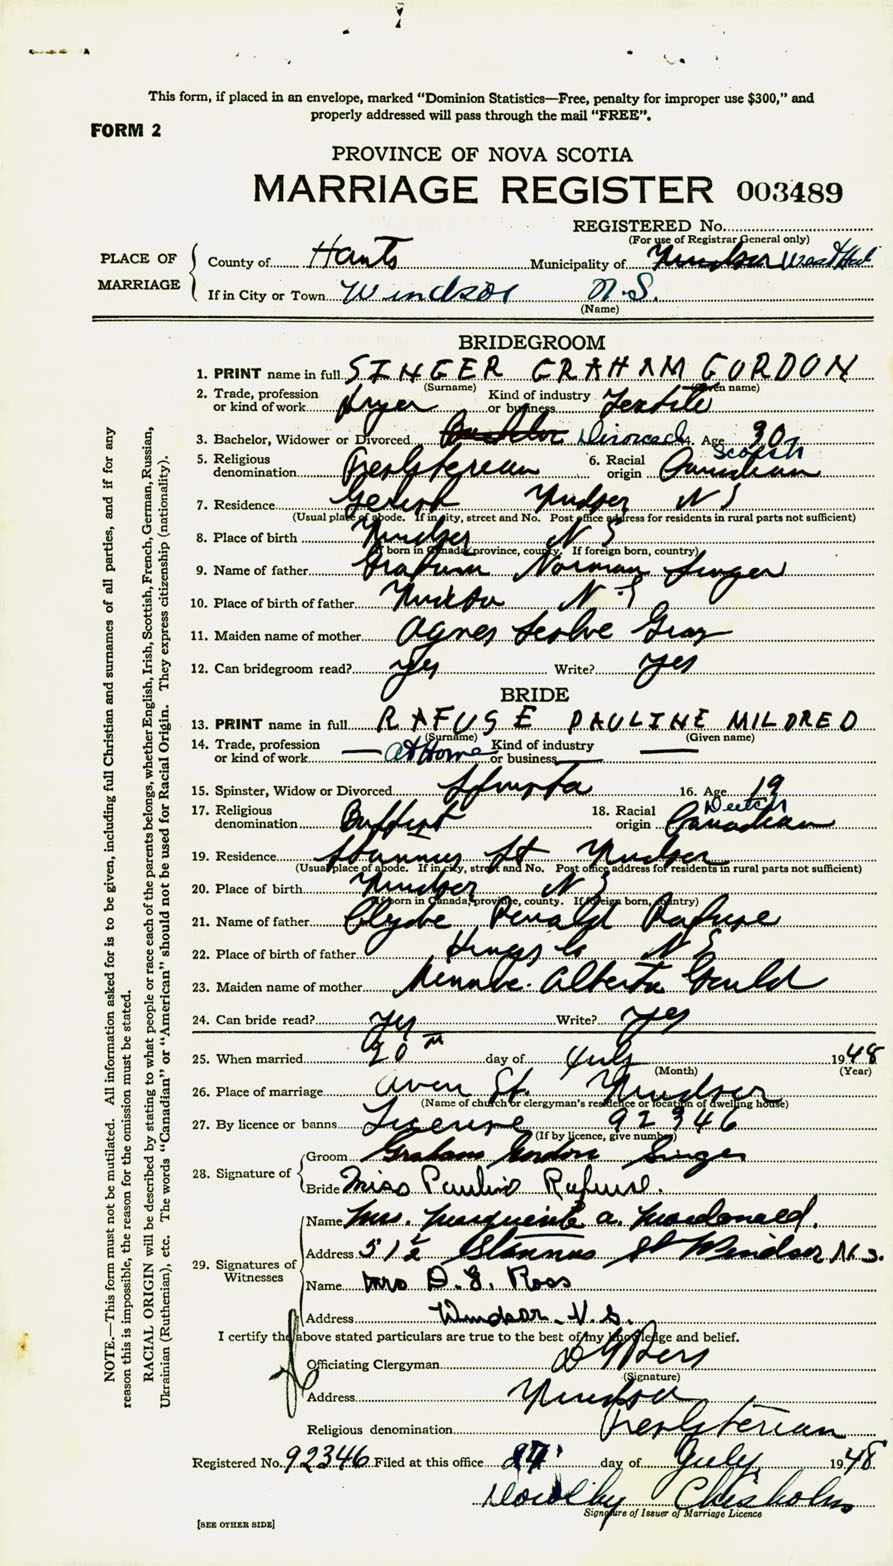 This form, if placed in an envelope, marked "Dominion Statistics—Free, penalty for improper use $300," and
properly addressed will pass through the mail "FREE".
FORM 2
PROVINCE OF NOVA SCOTIA
MARRIAGE REGISTER 003489
REGISTERED No.
(For use of Registrar General only)
PLACE OF MARRIAGE
County of Hants Municipality of Windsor West Hants
If in City or Town Windsor N.S.
(Name)
BRIDEGROOM
1. PRINT name in full SINGER GRAHAM GORDON
(Surname) (Given name)
2. Trade, profession or kind of work Dryer Kind of industry or business Textile
3. Bachelor, Widower or Divorced Bachelor Divorced 4. Age 30
5. Religious denomination Presbyterean 6. Racial origin Scotch Canadian
7. Residence Gerrish Windsor N S
(Usual place of abode. If in city, street and No. Post office address for residents in rural parts not sufficient)
8. Place of birth Windsor N S
(If born in Canada, province, county. If foreign born, country)
9. Name of father Graham Norman Singer
10. Place of birth of father Windsor N S
11. Maiden name of mother Agnes Gray
12. Can bridegroom read? yes Write? yes
BRIDE
13. PRINT name in full RAFUSE PAULINE MILDRED
(Surname) (Given name)
14. Trade, profession or kind of work — At Home Kind of industry or business —
15. Spinster, Widow or Divorced Spinster 16. Age 19
17. Religious denomination Baptist 18. Racial origin Dutch Canadian
19. Residence Stannus St Windsor
(Usual place of abode. If in city, street and No. Post office address for residents in rural parts not sufficient)
20. Place of birth Windsor N S
(If born in Canada, province, county. If foreign born, country)
21. Name of father Clyde Rafuse
22. Place of birth of father Kings Co N S
23. Maiden name of mother Alberta Gould
24. Can bride read? yes Write? yes
25. When married 20th day of July 1948
(Month) (Year)
26. Place of marriage Avon St. Windsor
(Name of church or clergyman's residence or location of dwelling house)
27. By licence or banns License 92346
(If by licence, give number)
28. Signature of
Groom Graham Gordon Singer
Bride Miss Pauline Rafuse.
29. Signatures of Witnesses
Name Mrs. Marguerite A. Macdonald.
Address 51½ Stannus St Windsor N.S.
Name Mrs D. G. Ross
Address Windsor N.S.
I certify the above stated particulars are true to the best of my knowledge and belief.
Officiating Clergyman D G Ross
(Signature)
Address Windsor
Religious denomination Presbyterian
Registered No. 92346 Filed at this office day of July 1948
Chisholm
Signature of Issuer of Marriage Licence
[SEE OTHER SIDE]
NOTE.—This form must not be mutilated. All information asked for is to be given, including full Christian and surnames of all parties, and if for any
reason this is impossible, the reason for the omission must be stated.
RACIAL ORIGIN will be described by stating to what people or race each of the parents belongs, whether English, Irish, Scottish, French, German, Russian,
Ukrainian (Ruthenian), etc. The words "Canadian" or "American" should not be used for Racial Origin. They express citizenship (nationality).